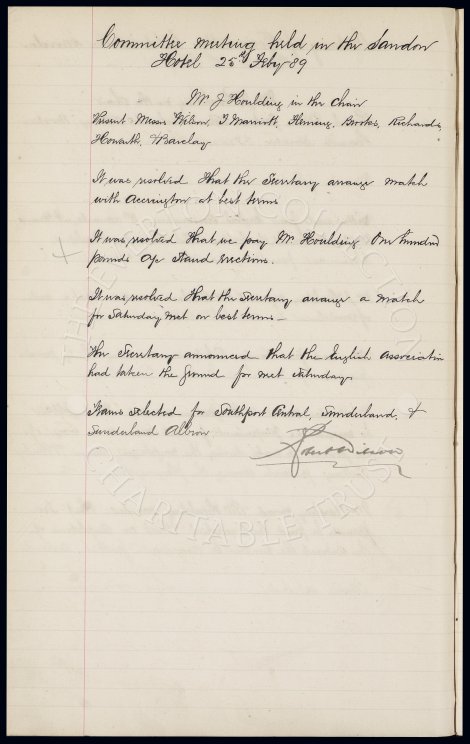 Committee meeting held in the Sandon
Hotel 25th Feby 89
Mr J Houlding in the Chair
Present Messrs Wilson, J Marriott, Fleming, Brooks, Richards,
Howarth, & Barclay
It was resolved that the Secretary arrange match
with Accrington at best terms
It was resolved that we pay Mr Houlding One hundred
pounds a/c Stand erections.
It was resolved that the Secretary arrange a match
for Saturday next on best terms —
The Secretary announced that the English Association
had taken the ground for next Saturday
Teams selected for Southport Central, Sunderland, &
Sunderland Albion
THE EVERTON COLLECTION
CHARITABLE TRUST